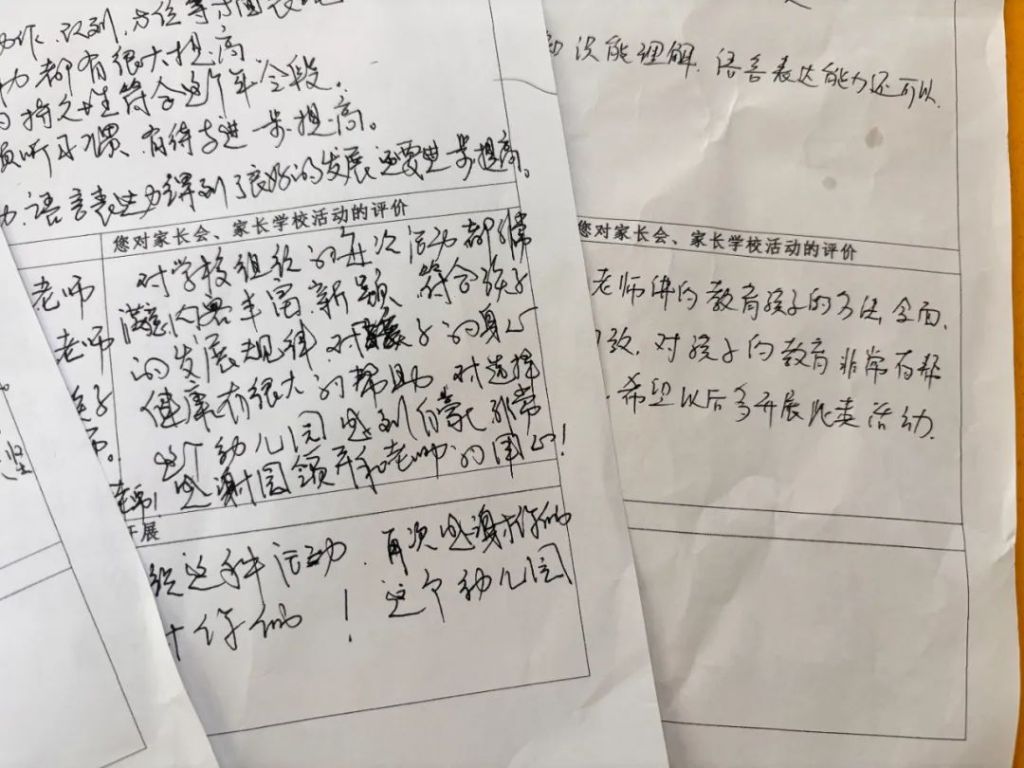 识别、方位等
力都有很大提高
持久性符合这个年令段。
倾听习惯 有待于进一步提高。
语言表达力得到了良好的发展 还要进一步提高。
您对家长会、家长学校活动的评价
对学校组织的每次活动都很
满意内容丰富新颖 符合孩子
的发展规律 对孩子的身心
健康有很大的帮助 对选择
这个幼儿园感到自豪 非常
感谢园领导和老师的用心!
开展
织这种活动 再次感谢你们
你们! 这个幼儿园
老师
老师
没能理解 语言表达能力还可以
您对家长会、家长学校活动的评价
老师讲的教育孩子的方法全面、
致. 对孩子的教育非常有帮
希望以后多开展此类活动.